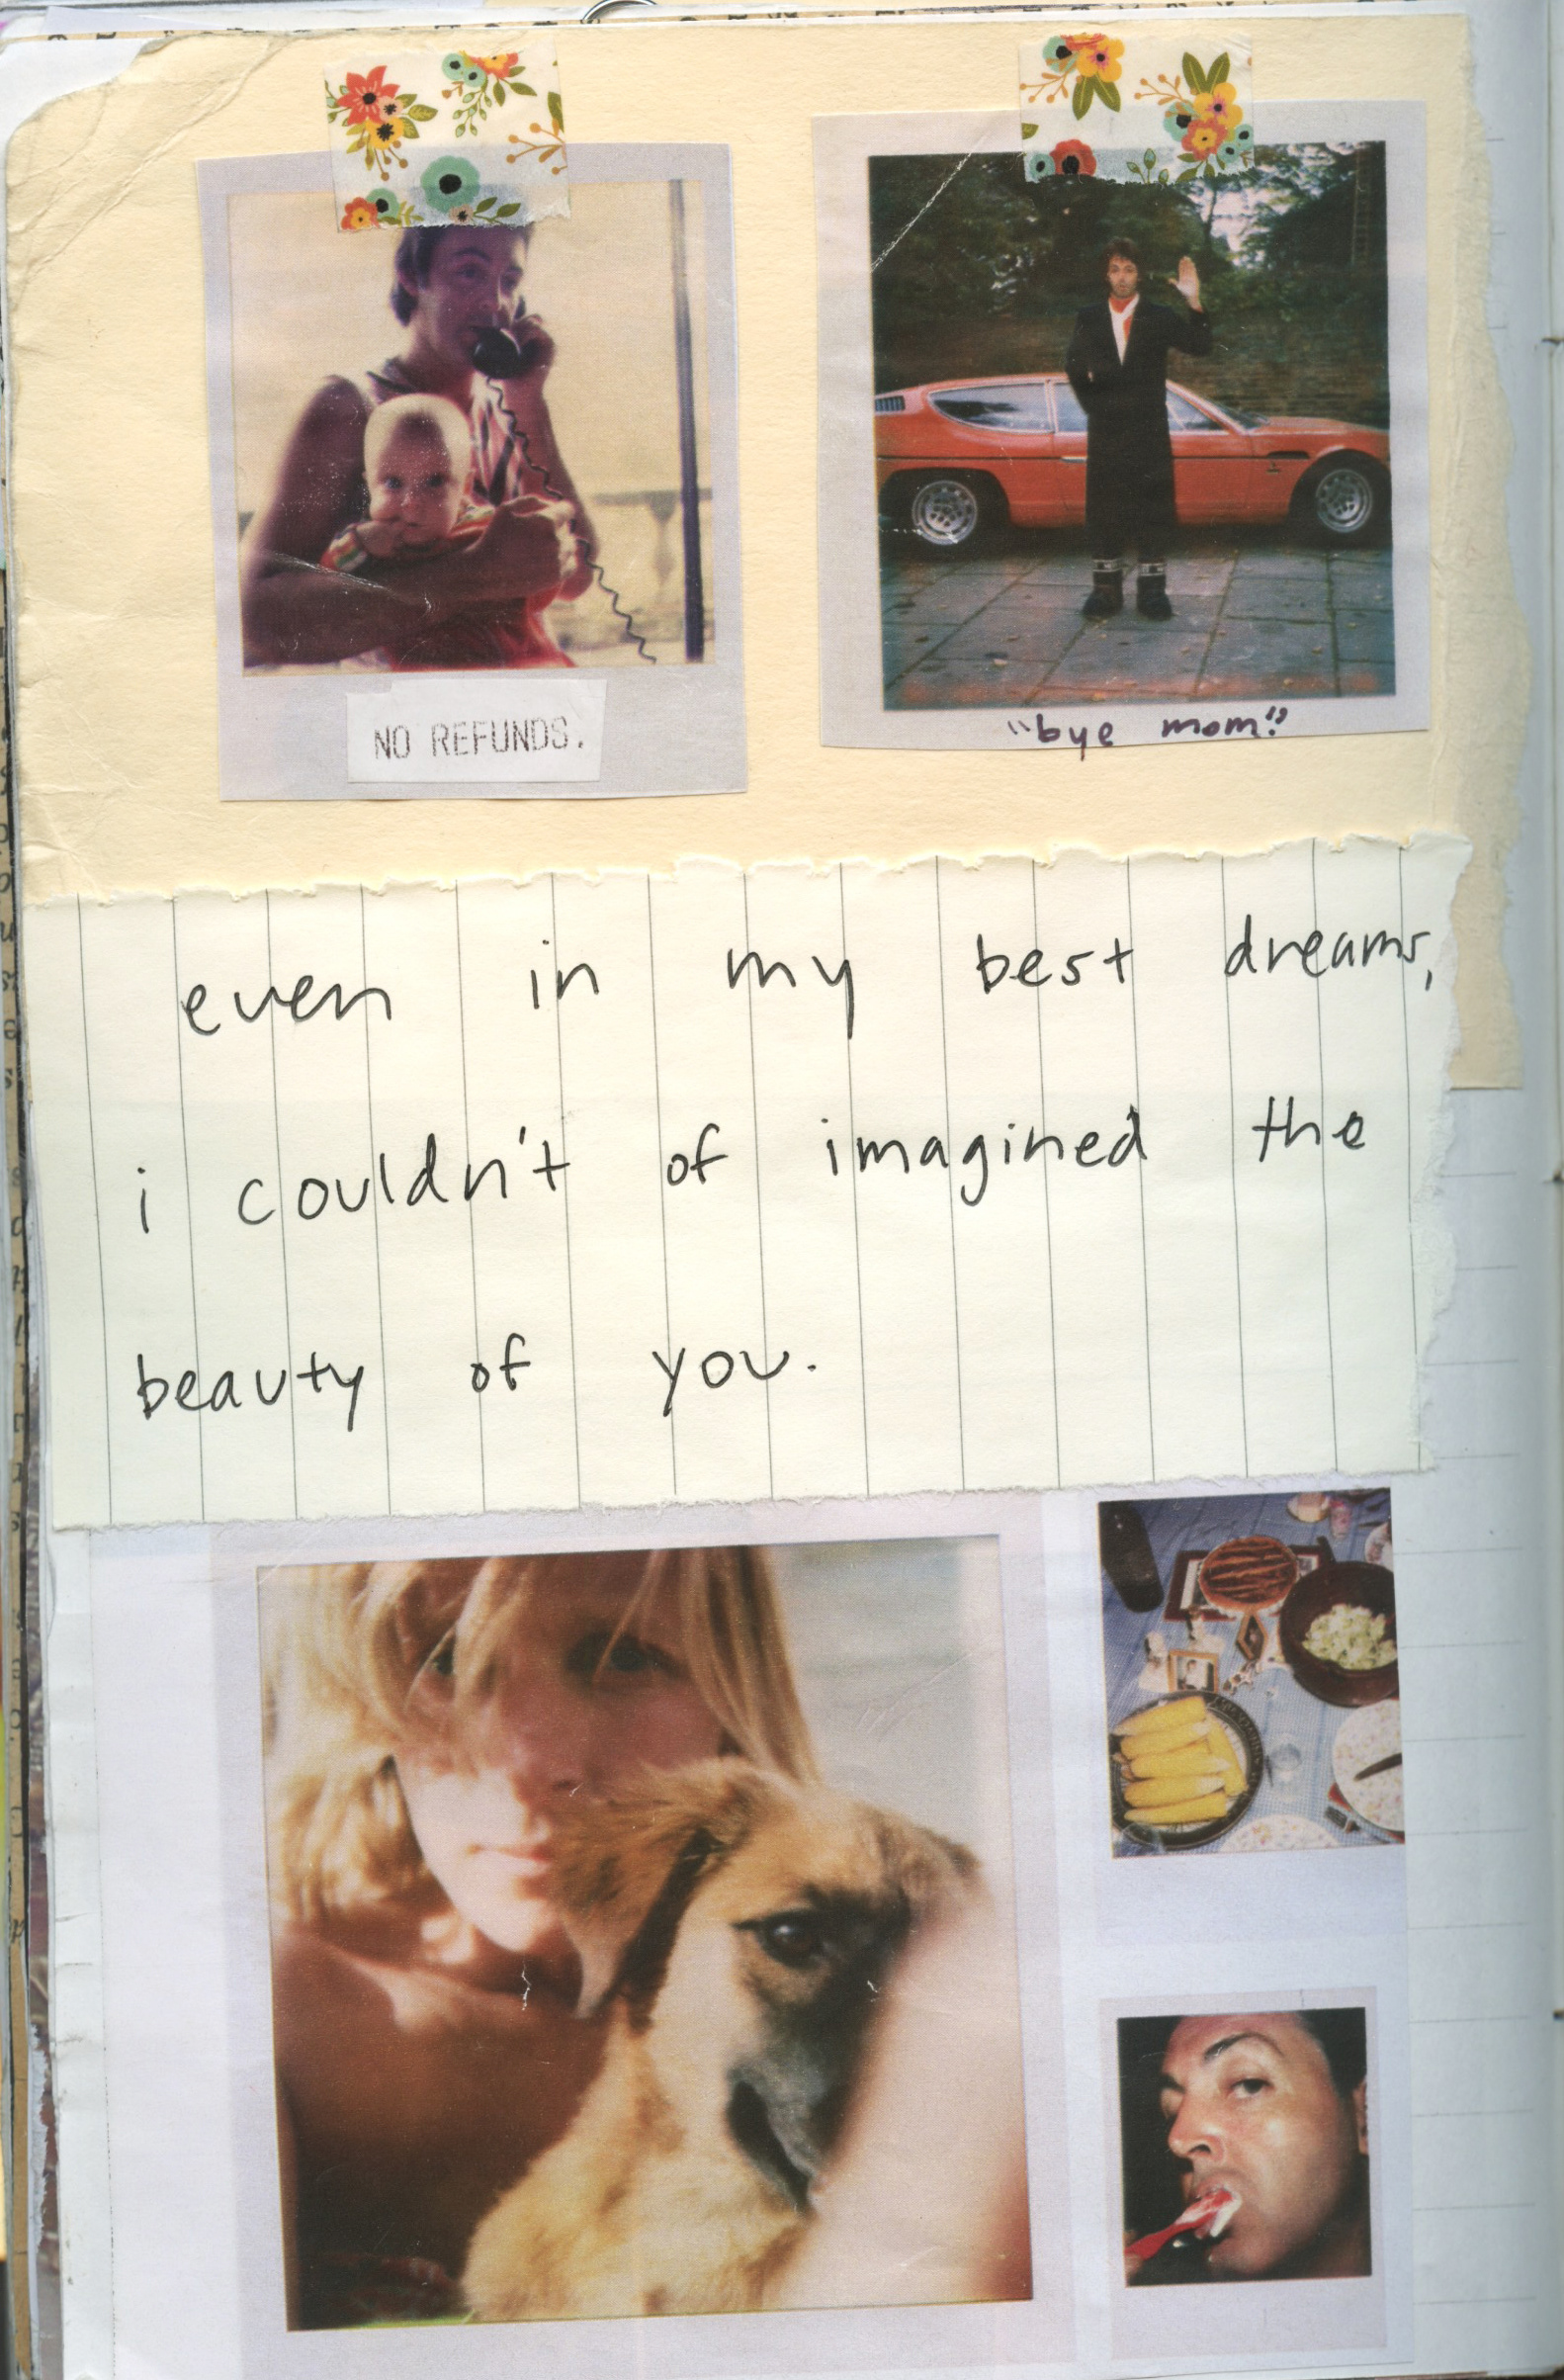 NO REFUNDS.
"bye mom."
even in my best dreams,
i couldn't of imagined the
beauty of you.